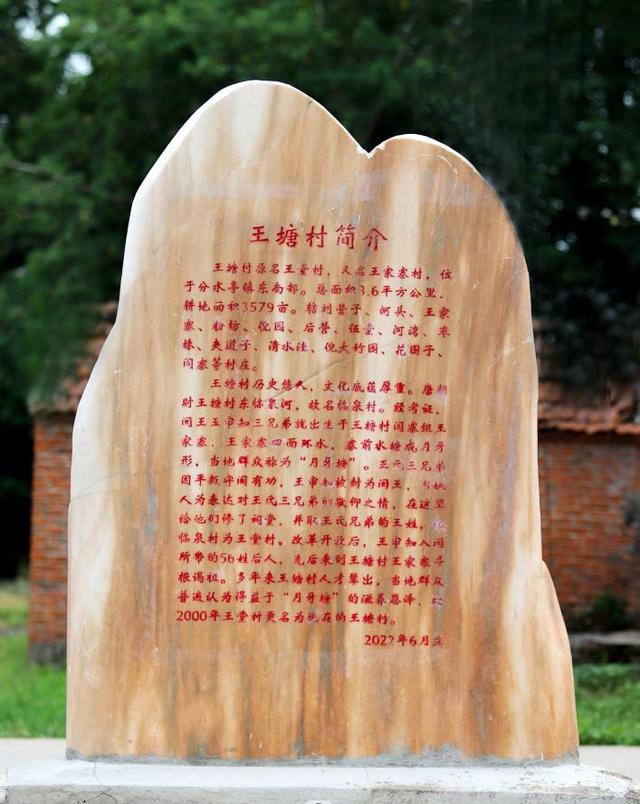 王塘村简介
王塘村原名王堂村，又名王家寨村，位
于分水亭镇东南部。总面积3.6平方公里，
耕地面积3579亩。辖刘营子、河头、王家
寨、粉坊、倪园、后营、伍堂、河湾、枣
林、夹道子、清水洼、倪大竹园、花园子、
闫寨等村庄。
王塘村历史悠久，文化底蕴厚重。唐朝
时王塘村东临泉河，故名临泉村。经考证，
闽王王审知三兄弟就出生于王塘村闫寨组王
家寨，王家寨四面环水，寨前水塘成月牙
形，当地群众称为“月牙塘”。王氏三兄弟
因平叛守闽有功，王审知被封为闽王，当地
人为表达对王氏三兄弟的敬仰之情，在这里
给他们修了祠堂，并取王氏兄弟的王姓，
临泉村为王堂村。改革开放后，王审知入闽
所带的56姓后人，先后来到王塘村王家寨寻
根谒祖。多年来王塘村人才辈出，当地群众
普遍认为得益于“月牙塘”的滋养恩泽，故
2000年王堂村更名为现在的王塘村。
2022年6月立